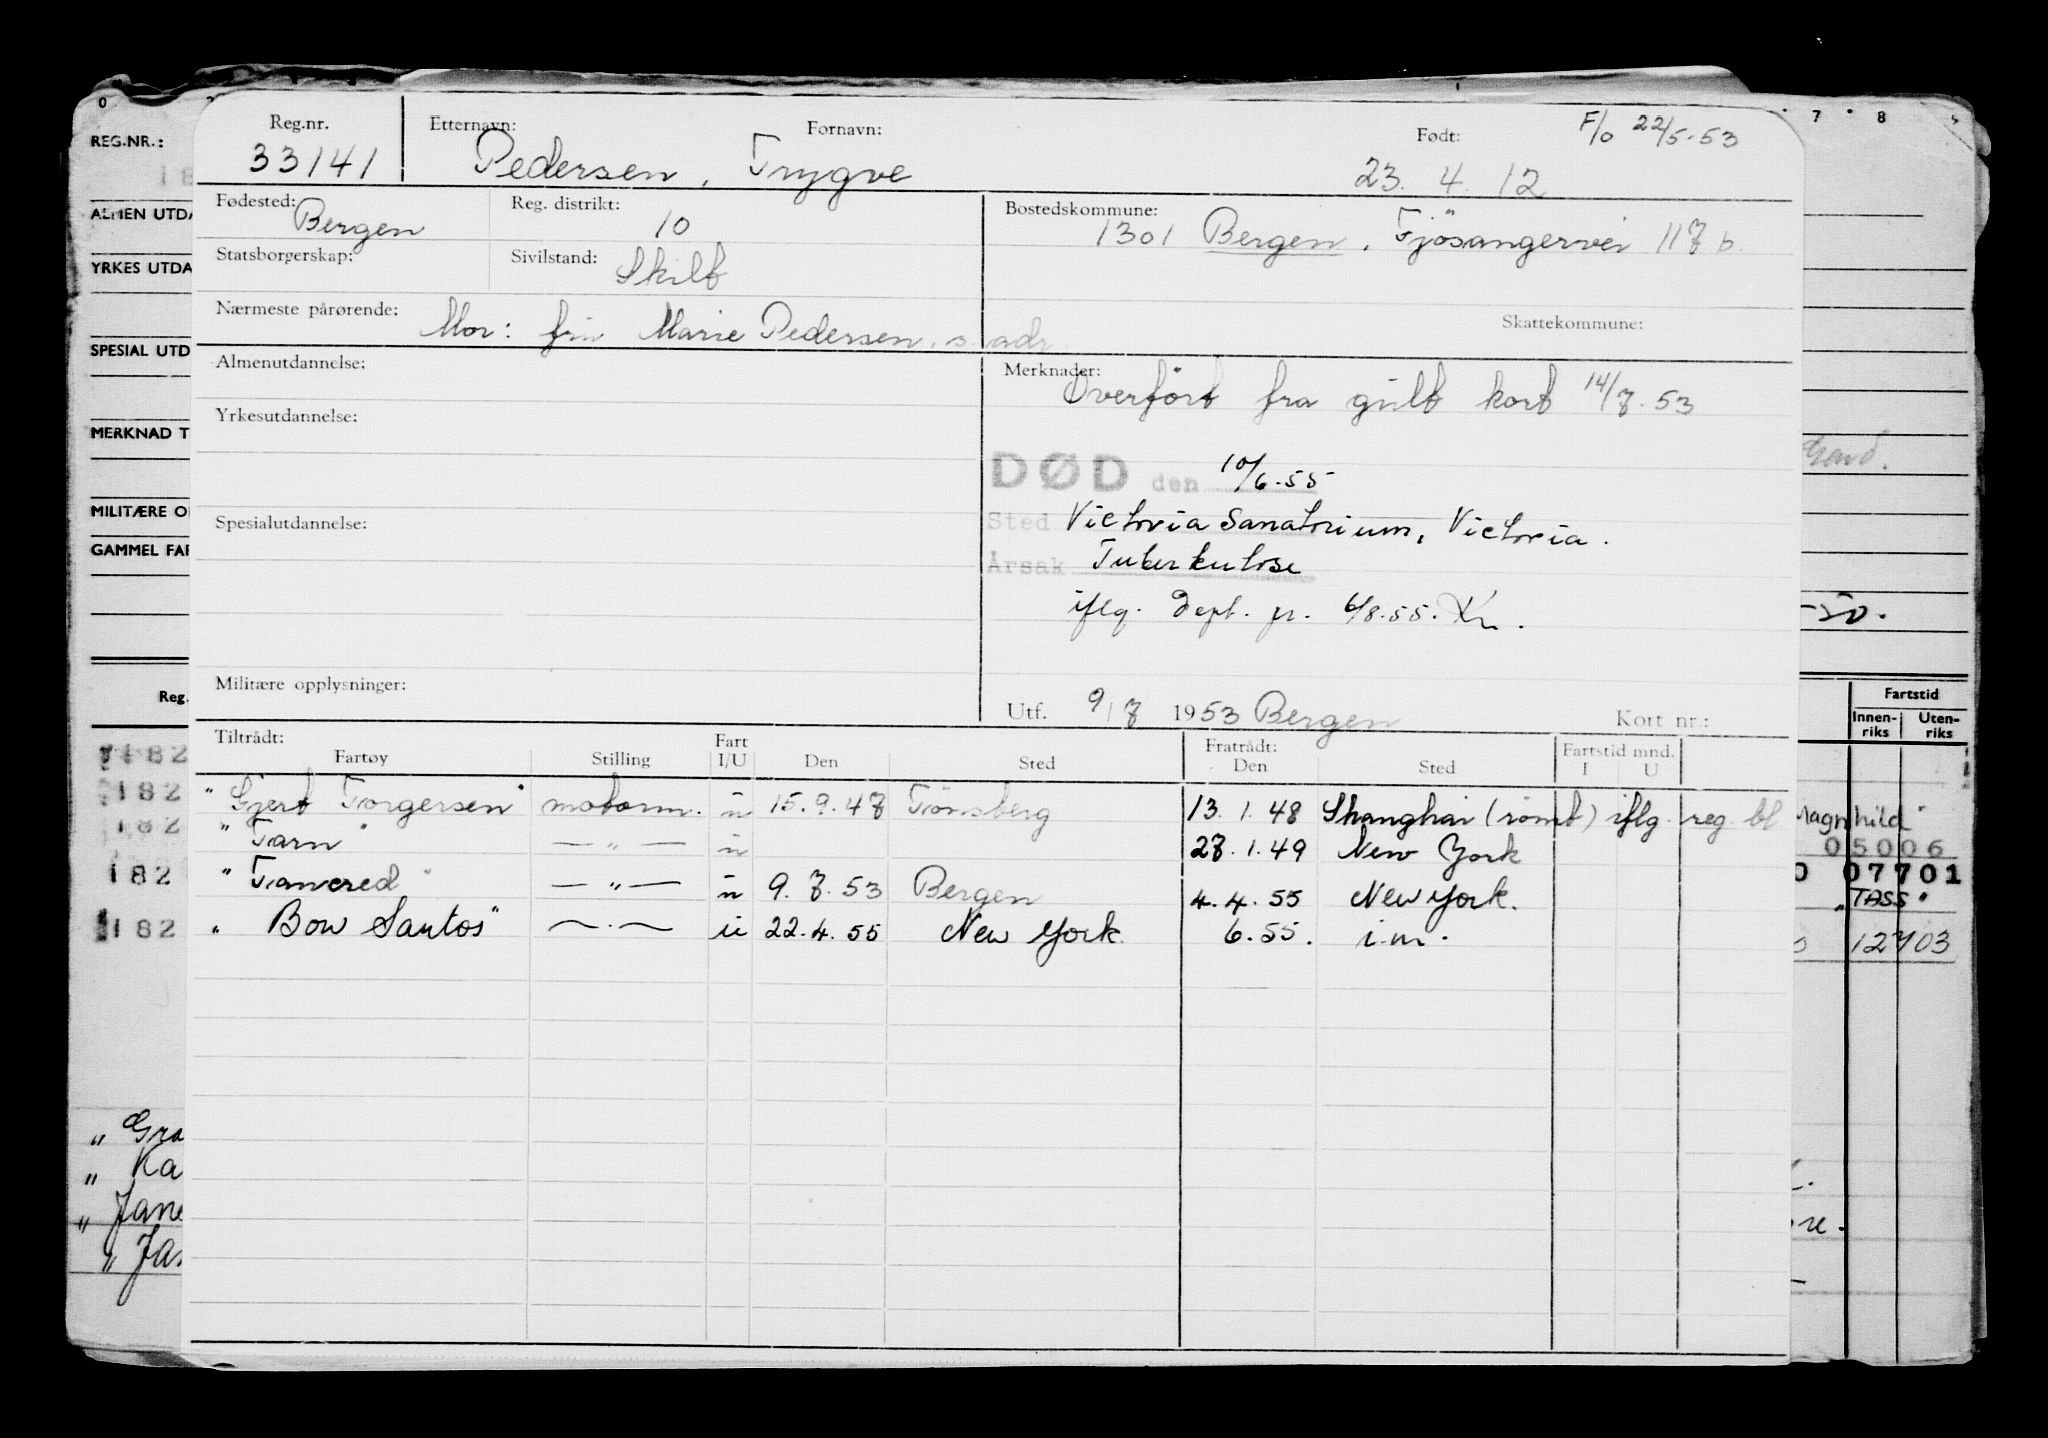 0 7 8
REG.NR.:
Reg.nr. Etternavn: Fornavn: Født: F/o 22/5-53
33141 Pedersen, Trygve 23. 4. 12
ALMEN UTDA
Fødested: Bergen Reg. distrikt: 10 Bostedskommune: 1301 Bergen, Fjösangervei 117 b.
YRKES UTDA
Statsborgerskap: Sivilstand: Skilt
Nærmeste pårørende: Mor: fru Marie Pedersen, s. adr. Skattekommune:
SPESIAL UTD
Almenutdannelse: Merknader: Overført fra gult kort 14/7.53
Yrkesutdannelse:
MERKNAD T
DØD den 10/6.55
MILITÆRE O
Spesialutdannelse: Sted Victoria Sanatorium, Victoria.
GAMMEL FAR
Årsak Tuberkulose
iflg. Dept. pr. 6/8.55. Kn.
Militære opplysninger: Utf. 9/7 1953 Bergen Kort nr.:
Reg. Fartstid
Innen-riks Uten-riks
Tiltrådt: Fratrådt: Fartstid mnd.
Fartøy Stilling Fart I/U Den Sted Den Sted I U
"Gjert Torgersen" motorm. u 15.9.47 Tönsberg 13.1.48 Shanghai (römt) iflg. reg. bl
"Tarn" — " — u 27.1.49 New York
"Tancred" — " — u 9.7.53 Bergen 4.4.55 New York.
"Bow Santos" — " — u 22.4.55 New York 6.55. i.m.
182
182
182
182
182
Magnhild"
05006
07701
"TASS"
12703
" Gra
" Ka
" Jane
" Ja